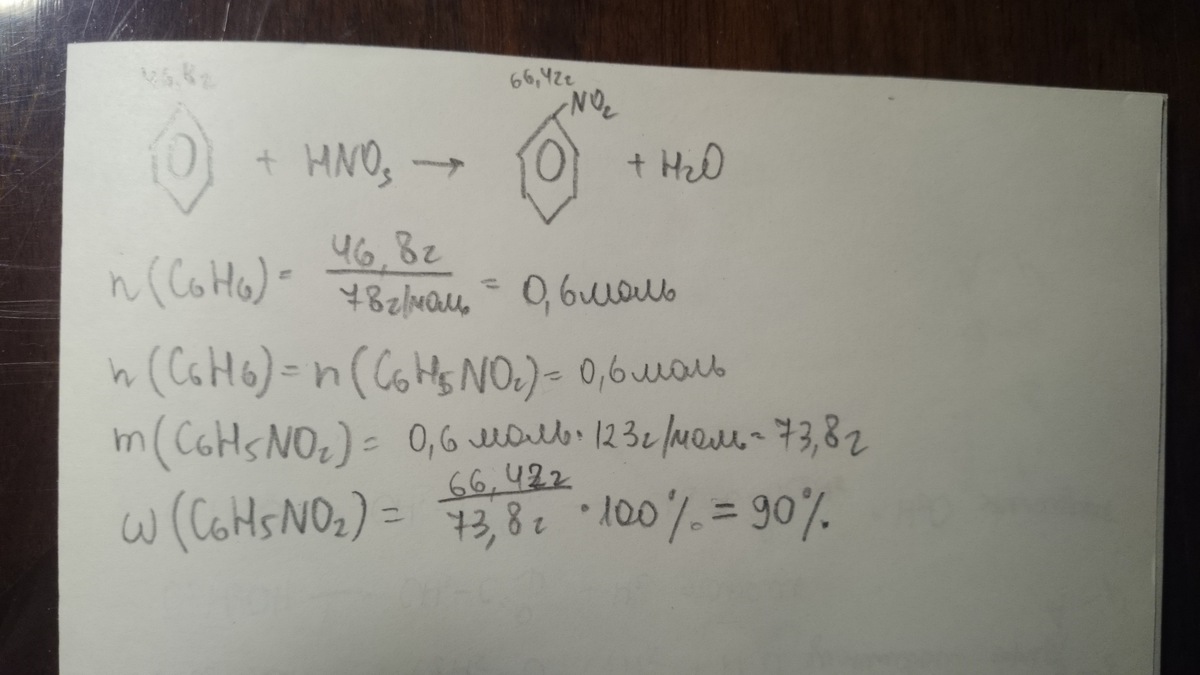 46,8г 66,42г
+ HNO3 → NO2 + H2O
n(C6H6) = 46,8г / 78г/моль = 0,6моль
n(C6H6) = n(C6H5NO2) = 0,6моль
m(C6H5NO2) = 0,6 моль · 123г/моль = 73,8г
ω(C6H5NO2) = 66,42г / 73,8г · 100% = 90%